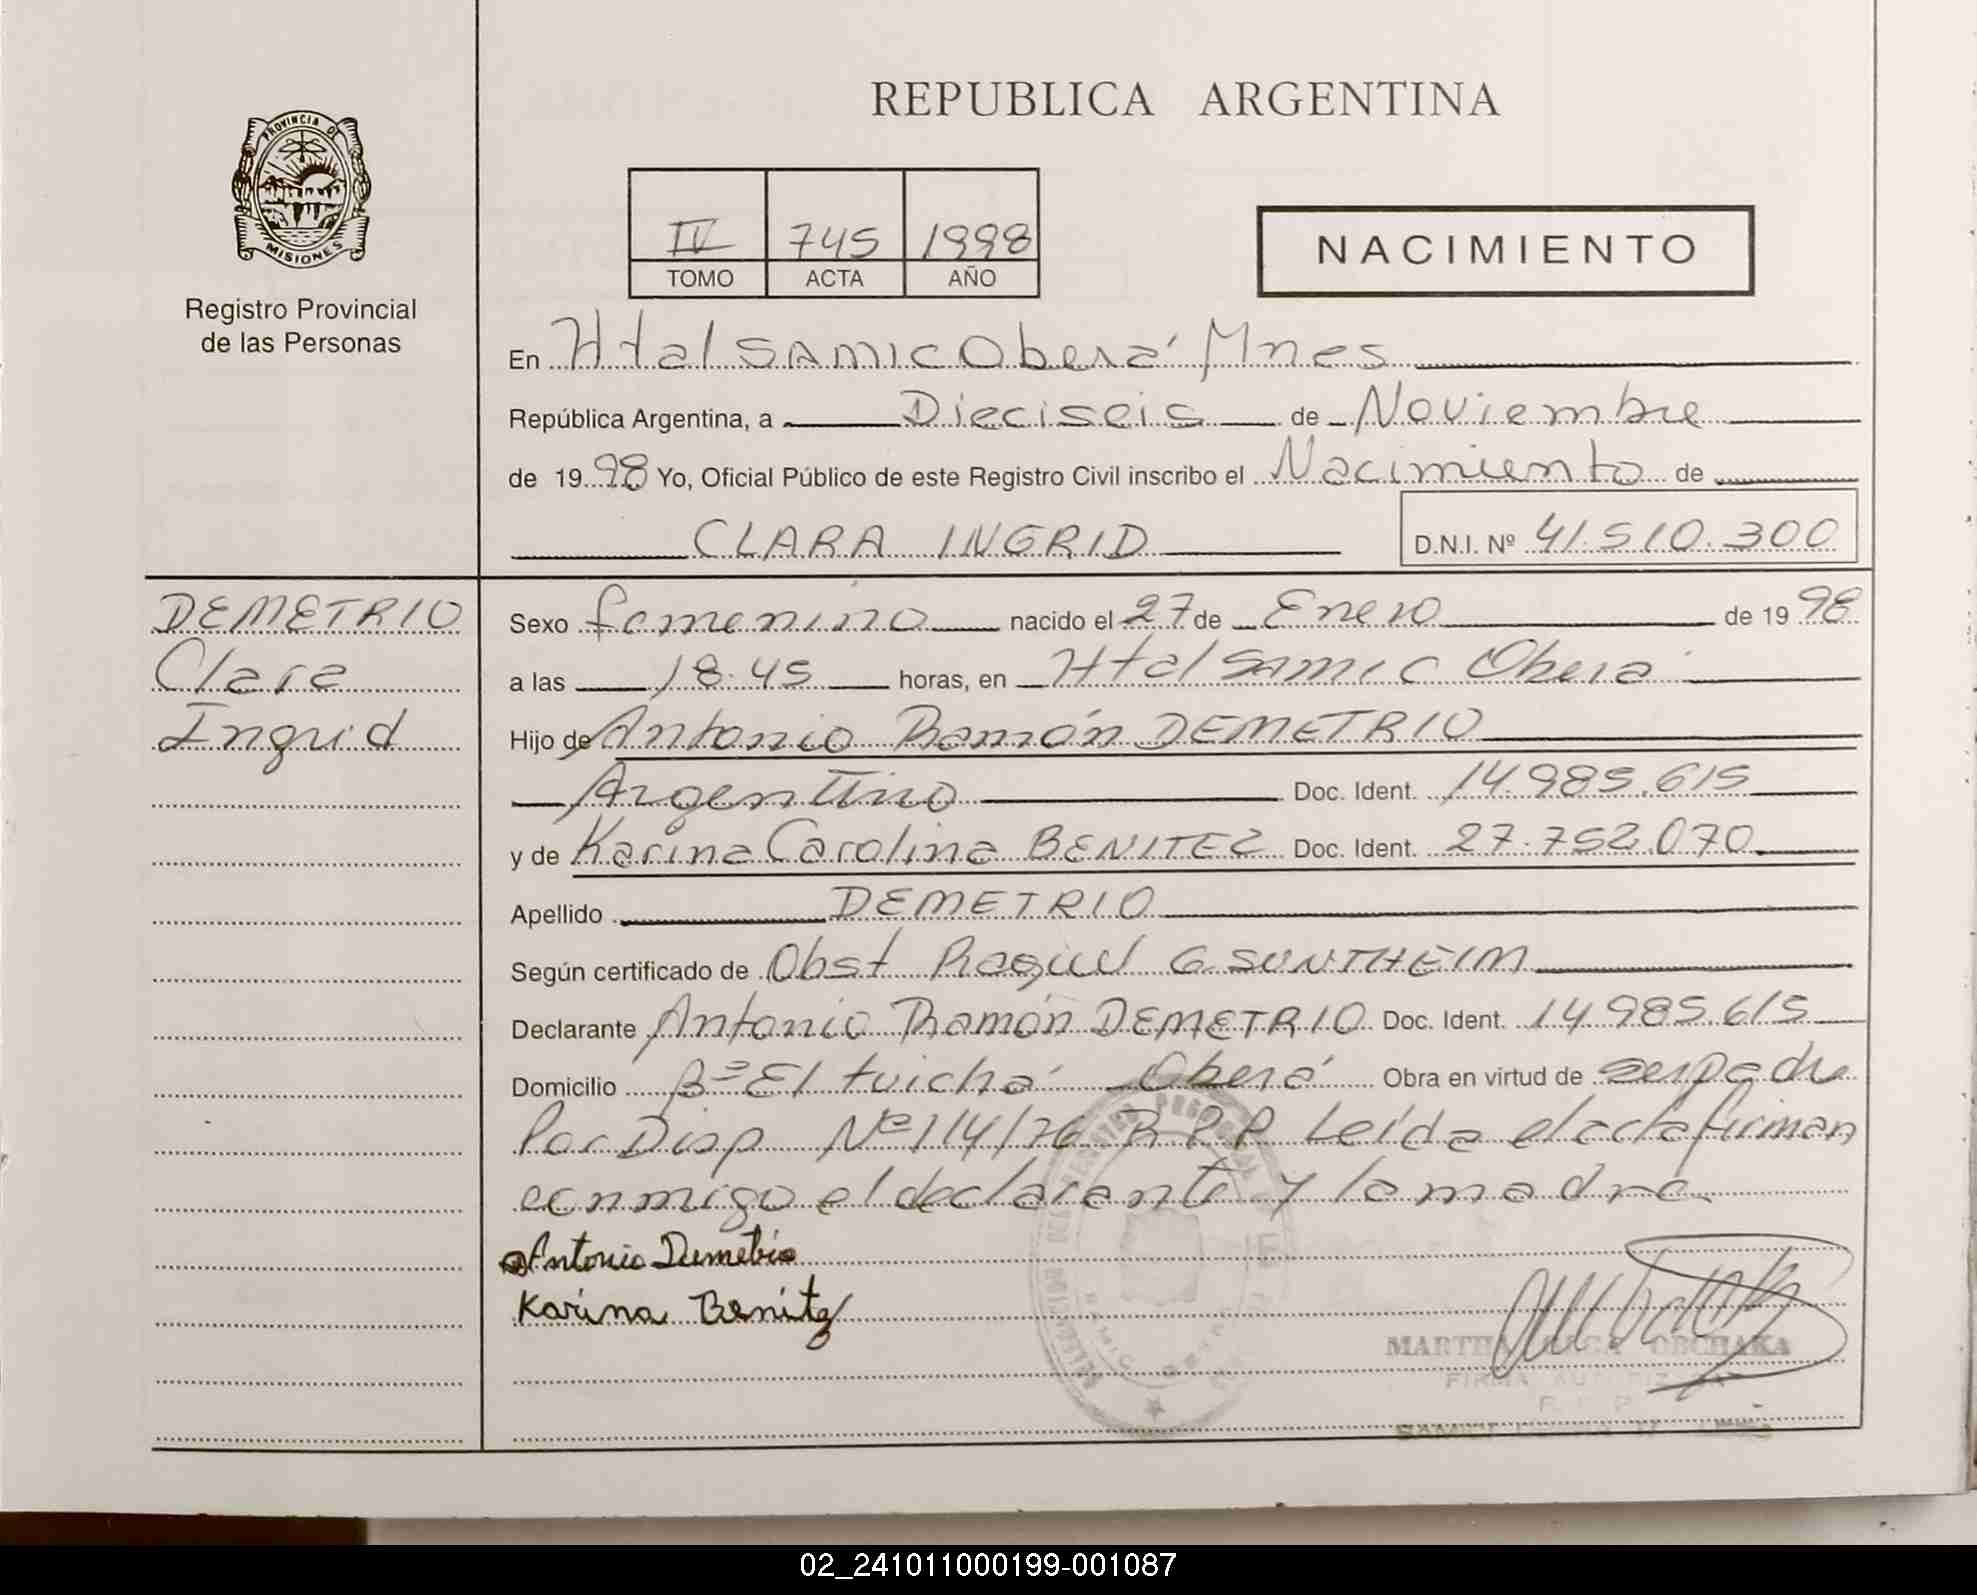 REPUBLICA ARGENTINA
PROVINCIA DE
MISIONES
Registro Provincial
de las Personas
IV 745 1998
TOMO ACTA AÑO
NACIMIENTO
En Htal SAMIC Oberá Mnes
República Argentina, a Dieciseis de Noviembre
de 19 98 Yo, Oficial Público de este Registro Civil inscribo el Nacimiento de
CLARA INGRID D.N.I. Nº 41.510.300
DEMETRIO
Clara
Ingrid
Sexo femenino nacido el 27 de Enero de 19 98
a las 18.45 horas, en Htal SAMIC Oberá
Hijo de Antonio Ramón DEMETRIO
Argentino Doc. Ident. 14.985.615
y de Karina Carolina BENITEZ Doc. Ident. 27.752.070
Apellido DEMETRIO
Según certificado de Obst Raquel G SUNTHEIM
Declarante Antonio Ramón DEMETRIO Doc. Ident. 14.985.615
Domicilio Bº El tuichá Oberá Obra en virtud de ser padre
Por Disp Nº 114/76 R.P.P. Leída el acta firman
conmigo el declarante y la madre
Antonio Demetrio
Karina Benitez
MARTHA OLGA OBCHAKA
FIRMA AUTORIZADA
02_241011000199-001087